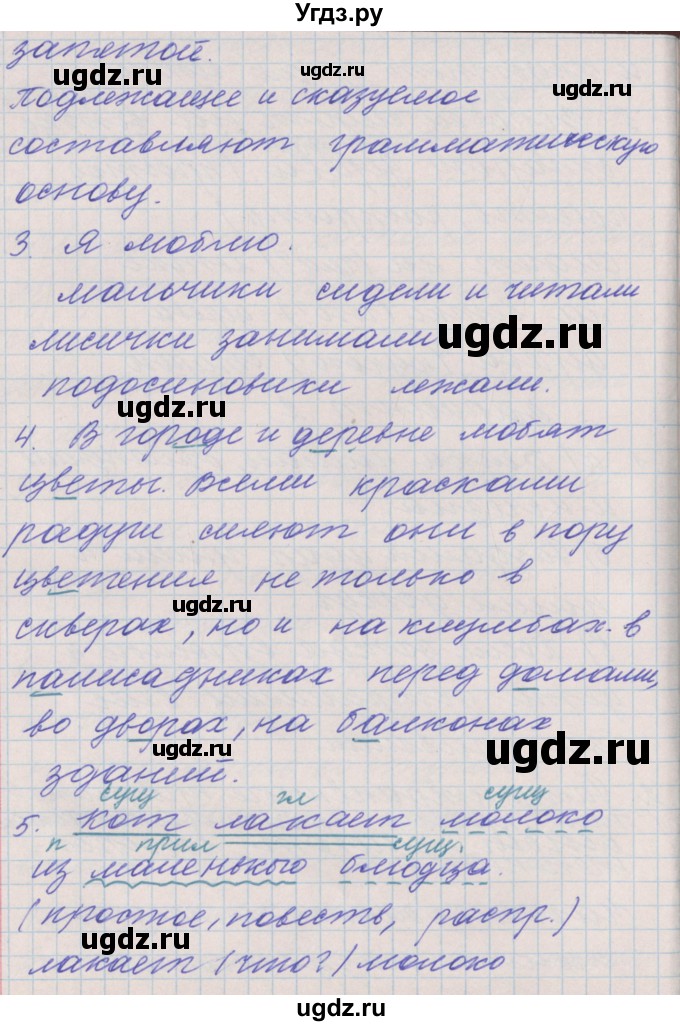 Угдз.ру
запятой.
ugdz.ru ugdz.ru ugdz.ru
Подлежащее и сказуемое
составляют грамматическую
основу.
3. Я люблю.
мальчики сидели и читали
лисички занимали
ugdz.ru
подосиновики лежали.
ugdz.ru
4. В городе и деревне любят
цветы. Всеми красками
радуги сияют они в пору
цветения не только в
ugdz.ru
скверах, но и на клумбах. в
палисадниках перед домами,
во дворах, на балконах
ugdz.ru ugdz.ru
зданий.
сущ гл сущ
5. Кот лакает молоко
п прил сущ.
из маленького блюдца.
(простое, повеств, распр.)
ugdz.ru
лакает (что?) молоко
ugdz.ru